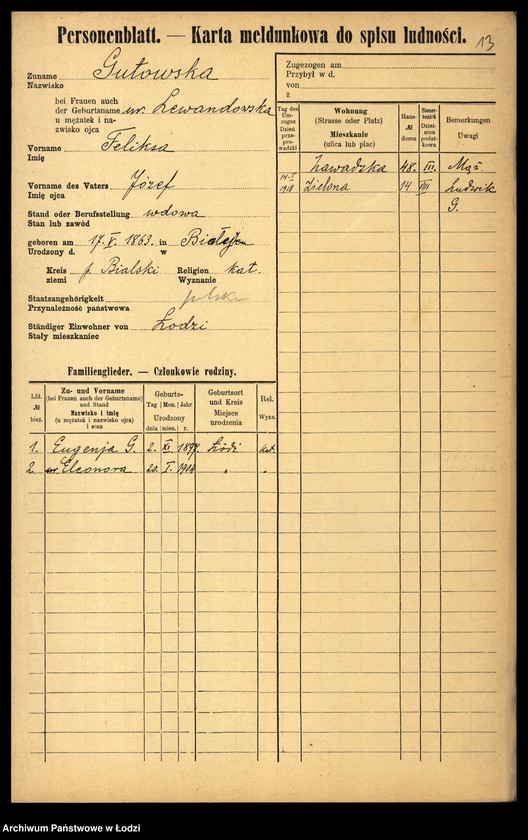 Personenblatt. — Karta meldunkowa do spisu ludności.
13
Zuname Gutowska
Nazwisko
bei Frauen auch
der Geburtsname ur. Lewandowska
u mężatek i na-
zwisko ojca
Vorname Feliksa
Imię
Vorname des Vaters Józef
Imię ojca
Stand oder Berufsstellung wdowa
Stan lub zawód
geboren am 17. V. 1863. in
Urodzony d. w
Kreis p. Bialski Religion kat.
ziemi Wyznanie
Staatsangehörigkeit polska
Przynależność państwowa
Ständiger Einwohner von Łodzi
Stały mieszkaniec
Zugezogen am
Przybył w d.
von
z
Tag des Um-zuges Dzień prze-pro-wadzki
Wohnung (Strasse oder Platz) Mieszkanie (ulica lub plac)
Haus-№ domu
Steuer-bezirk Dziel-nica podat-kowa
Bemerkungen Uwagi
Zawadzka 48. III. Mąż
14. I 1918 Zielona 14 VIII Ludwik
G.
Familienglieder. — Członkowie rodziny.
Lfd. № bież.
Zu- und Vorname (bei Frauen auch der Geburtsname) und Stand Nazwisko i imię (u mężatek i nazwisko ojca) i stan
Geburts- Tag Mon. Jahr Urodzony dnia mies. r.
Geburtsort und Kreis Miejsce urodzenia
Rel. Wyzn.
1. Eugenja G. 2. XI 1897. Łódź kat.
2. Eleonora 20. I. 1904 " "
Archiwum Państwowe w Łodzi